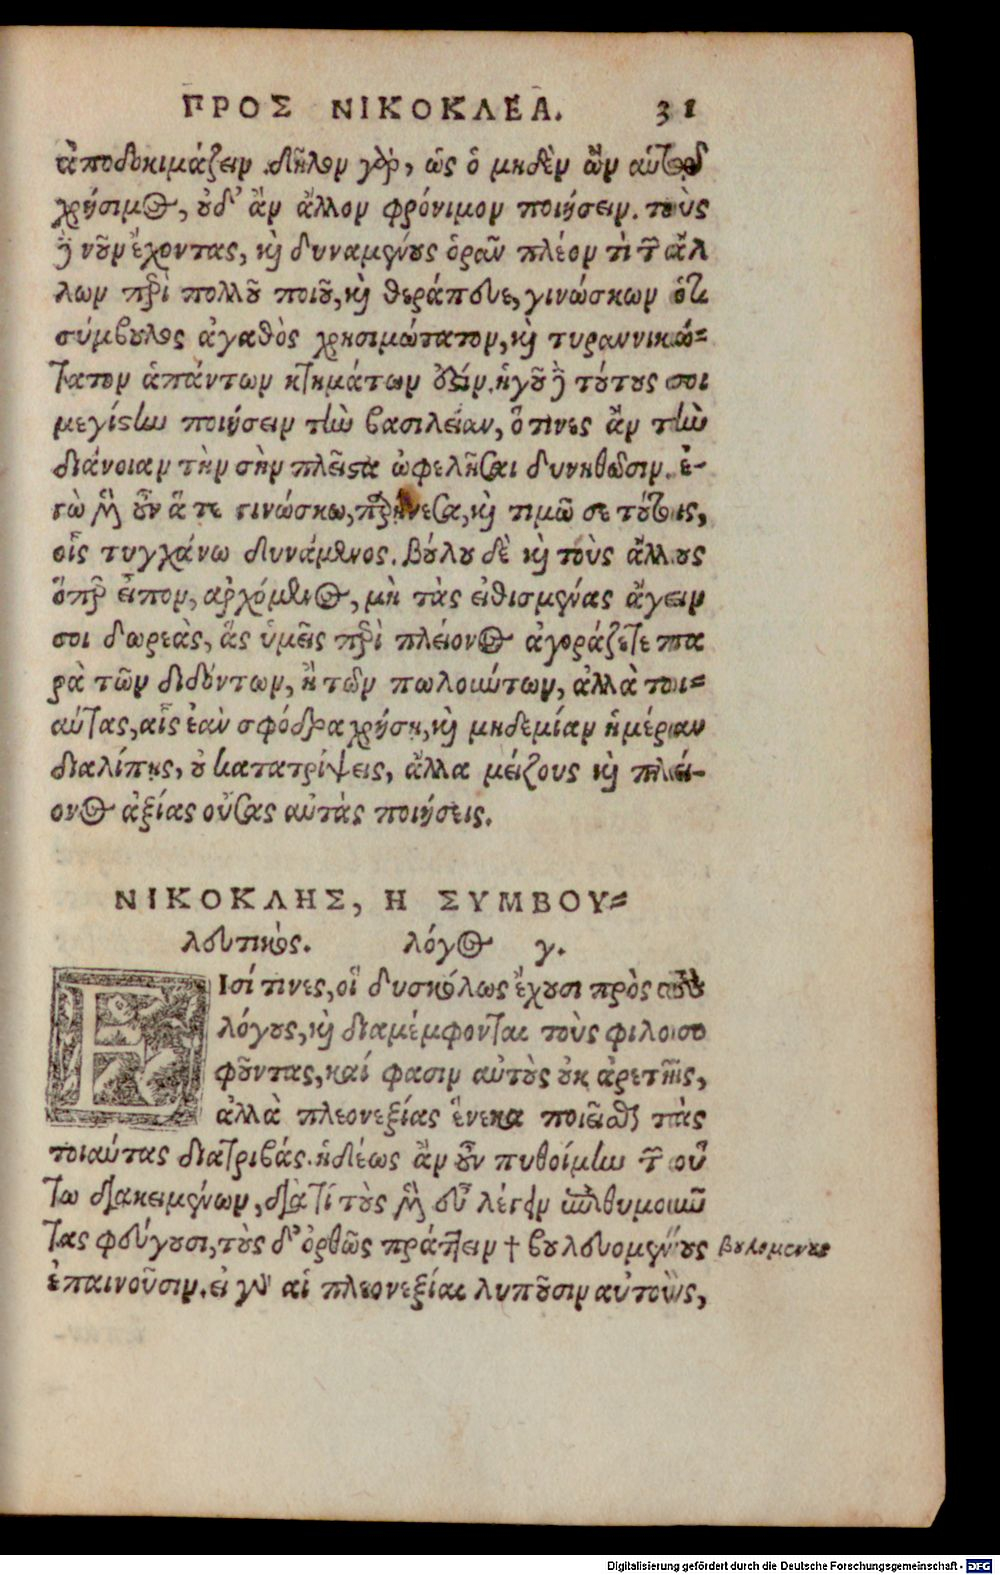 ΠΡΟΣ ΝΙΚΟΚΛΕΑ. 31
ἀποδοκιμάζειν. δῆλον γὰρ, ὡς ὁ μηδὲν ὢν αὑτῷ
χρήσιμος, οὐδ' ἂν ἄλλον φρόνιμον ποιήσειν. τοὺς
δὲ νοῦν ἔχοντας, καὶ δυναμένους ὁρᾶν πλέον τὶ τῶν ἄλ
λων περὶ πολλοῦ ποιοῦ, καὶ θεράπευε, γινώσκων ὅτι
σύμβουλος ἀγαθὸς χρησιμώτατον, καὶ τυραννικώ=
τατον ἁπάντων κτημάτων ἐστίν. ἡγοῦ δὲ τούτους σοι
μεγίστην ποιήσειν τὴν βασιλείαν, ὅτινες ἂν τὴν
διάνοιαν τὴν σὴν πλεῖστα ὠφελῆσαι δυνηθῶσιν. ἐ-
γὼ μὲν οὖν ἅ τε γινώσκω, παρῄνεσα, καὶ τιμῶ σε τούτοις,
οἷς τυγχάνω δυνάμενος. βούλου δὲ καὶ τοὺς ἄλλους
ὅπερ εἶπον, ἀρχόμενος, μὴ τὰς εἰθισμένας ἄγειν
σοι δωρεὰς, ἃς ὑμεῖς περὶ πλείονος ἀγοράζετε πα
ρὰ τῶν διδόντων, ἢ τῶν πωλούντων, ἀλλὰ τοι=
αύτας, αἷς ἐὰν σφόδρα χρήσῃ, καὶ μηδεμίαν ἡμέραν
διαλίπῃς, οὐ κατατρίψεις, ἄλλα μείζους καὶ πλεί-
ονος ἀξίας οὔσας αὐτὰς ποιήσεις.
ΝΙΚΟΚΛΗΣ, Η ΣΥΜΒΟΥ=
λευτικός. λόγος γ.
ΕΙσί τινες, οἳ δυσκόλως ἔχουσι πρὸς τοὺς
λόγους, καὶ διαμέμφονται τοὺς φιλοσο
φοῦντας, καί φασιν αὐτοὺς οὐκ ἀρετῆς,
ἀλλὰ πλεονεξίας ἕνεκα ποιεῖσθαι τὰς
τοιαύτας διατριβάς. ἡδέως ἂν οὖν πυθοίμην τῶν οὕ
τω διακειμένων, διατί τοὺς μὲν εὖ λέγειν ἐπιθυμοῦν
τας ψέγουσι, τοὺς δ' ὀρθῶς πράττειν † βουλευομένους βουλομενους
ἐπαινοῦσιν. εἰ γὰρ αἱ πλεονεξίαι λυποῦσιν αὐτοὺς,
Digitalisierung gefördert durch die Deutsche Forschungsgemeinschaft - DFG